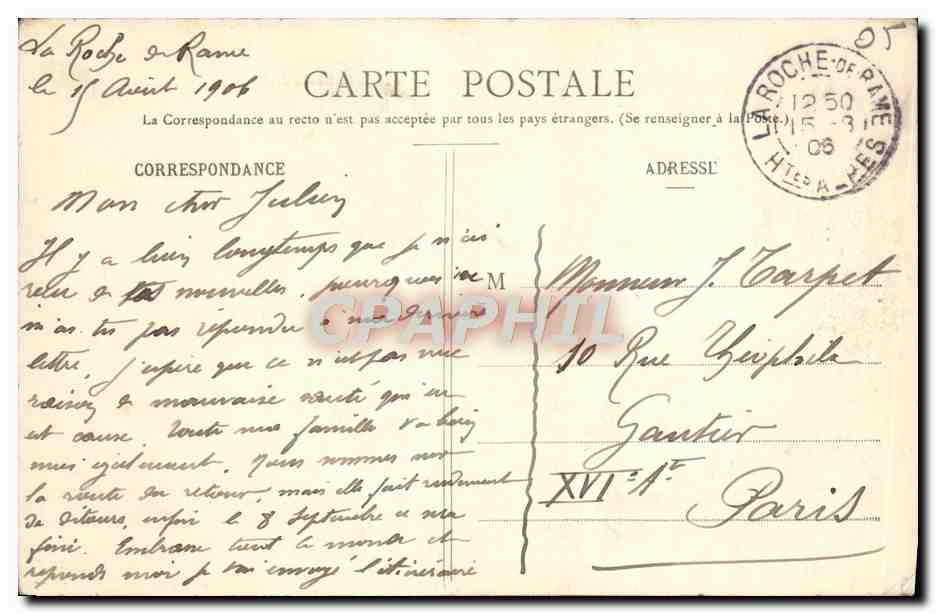 La Roche de Rame
le 15 Août 1906
05
CARTE POSTALE
La Correspondance au recto n'est pas acceptée par tous les pays étrangers. (Se renseigner à la Poste.)
LA ROCHE-DE-RAME
12 50
15 -8
06
HTES ALPES
CORRESPONDANCE
ADRESSE
Mon cher Julien
Il y a bien longtemps que je n'ai
reçu de tes nouvelles, pourquoi ne
m'as tu pas répondu à ma dernière
lettre. J'espère que ce n'est pas une
raison de mauvaise santé qui en
est cause. Toute ma famille va bien
moi également. Nous sommes sur
la route du retour, mais elle fait rudement
de détours, enfin le 8 Septembre ce sera
fini. Embrasse tout le monde et
réponds moi je t'ai envoyé l'itinéraire
M
Monsieur J. Tarpet
10 Rue Théophile
Gautier
XVIe Art
Paris
CPAPHIL